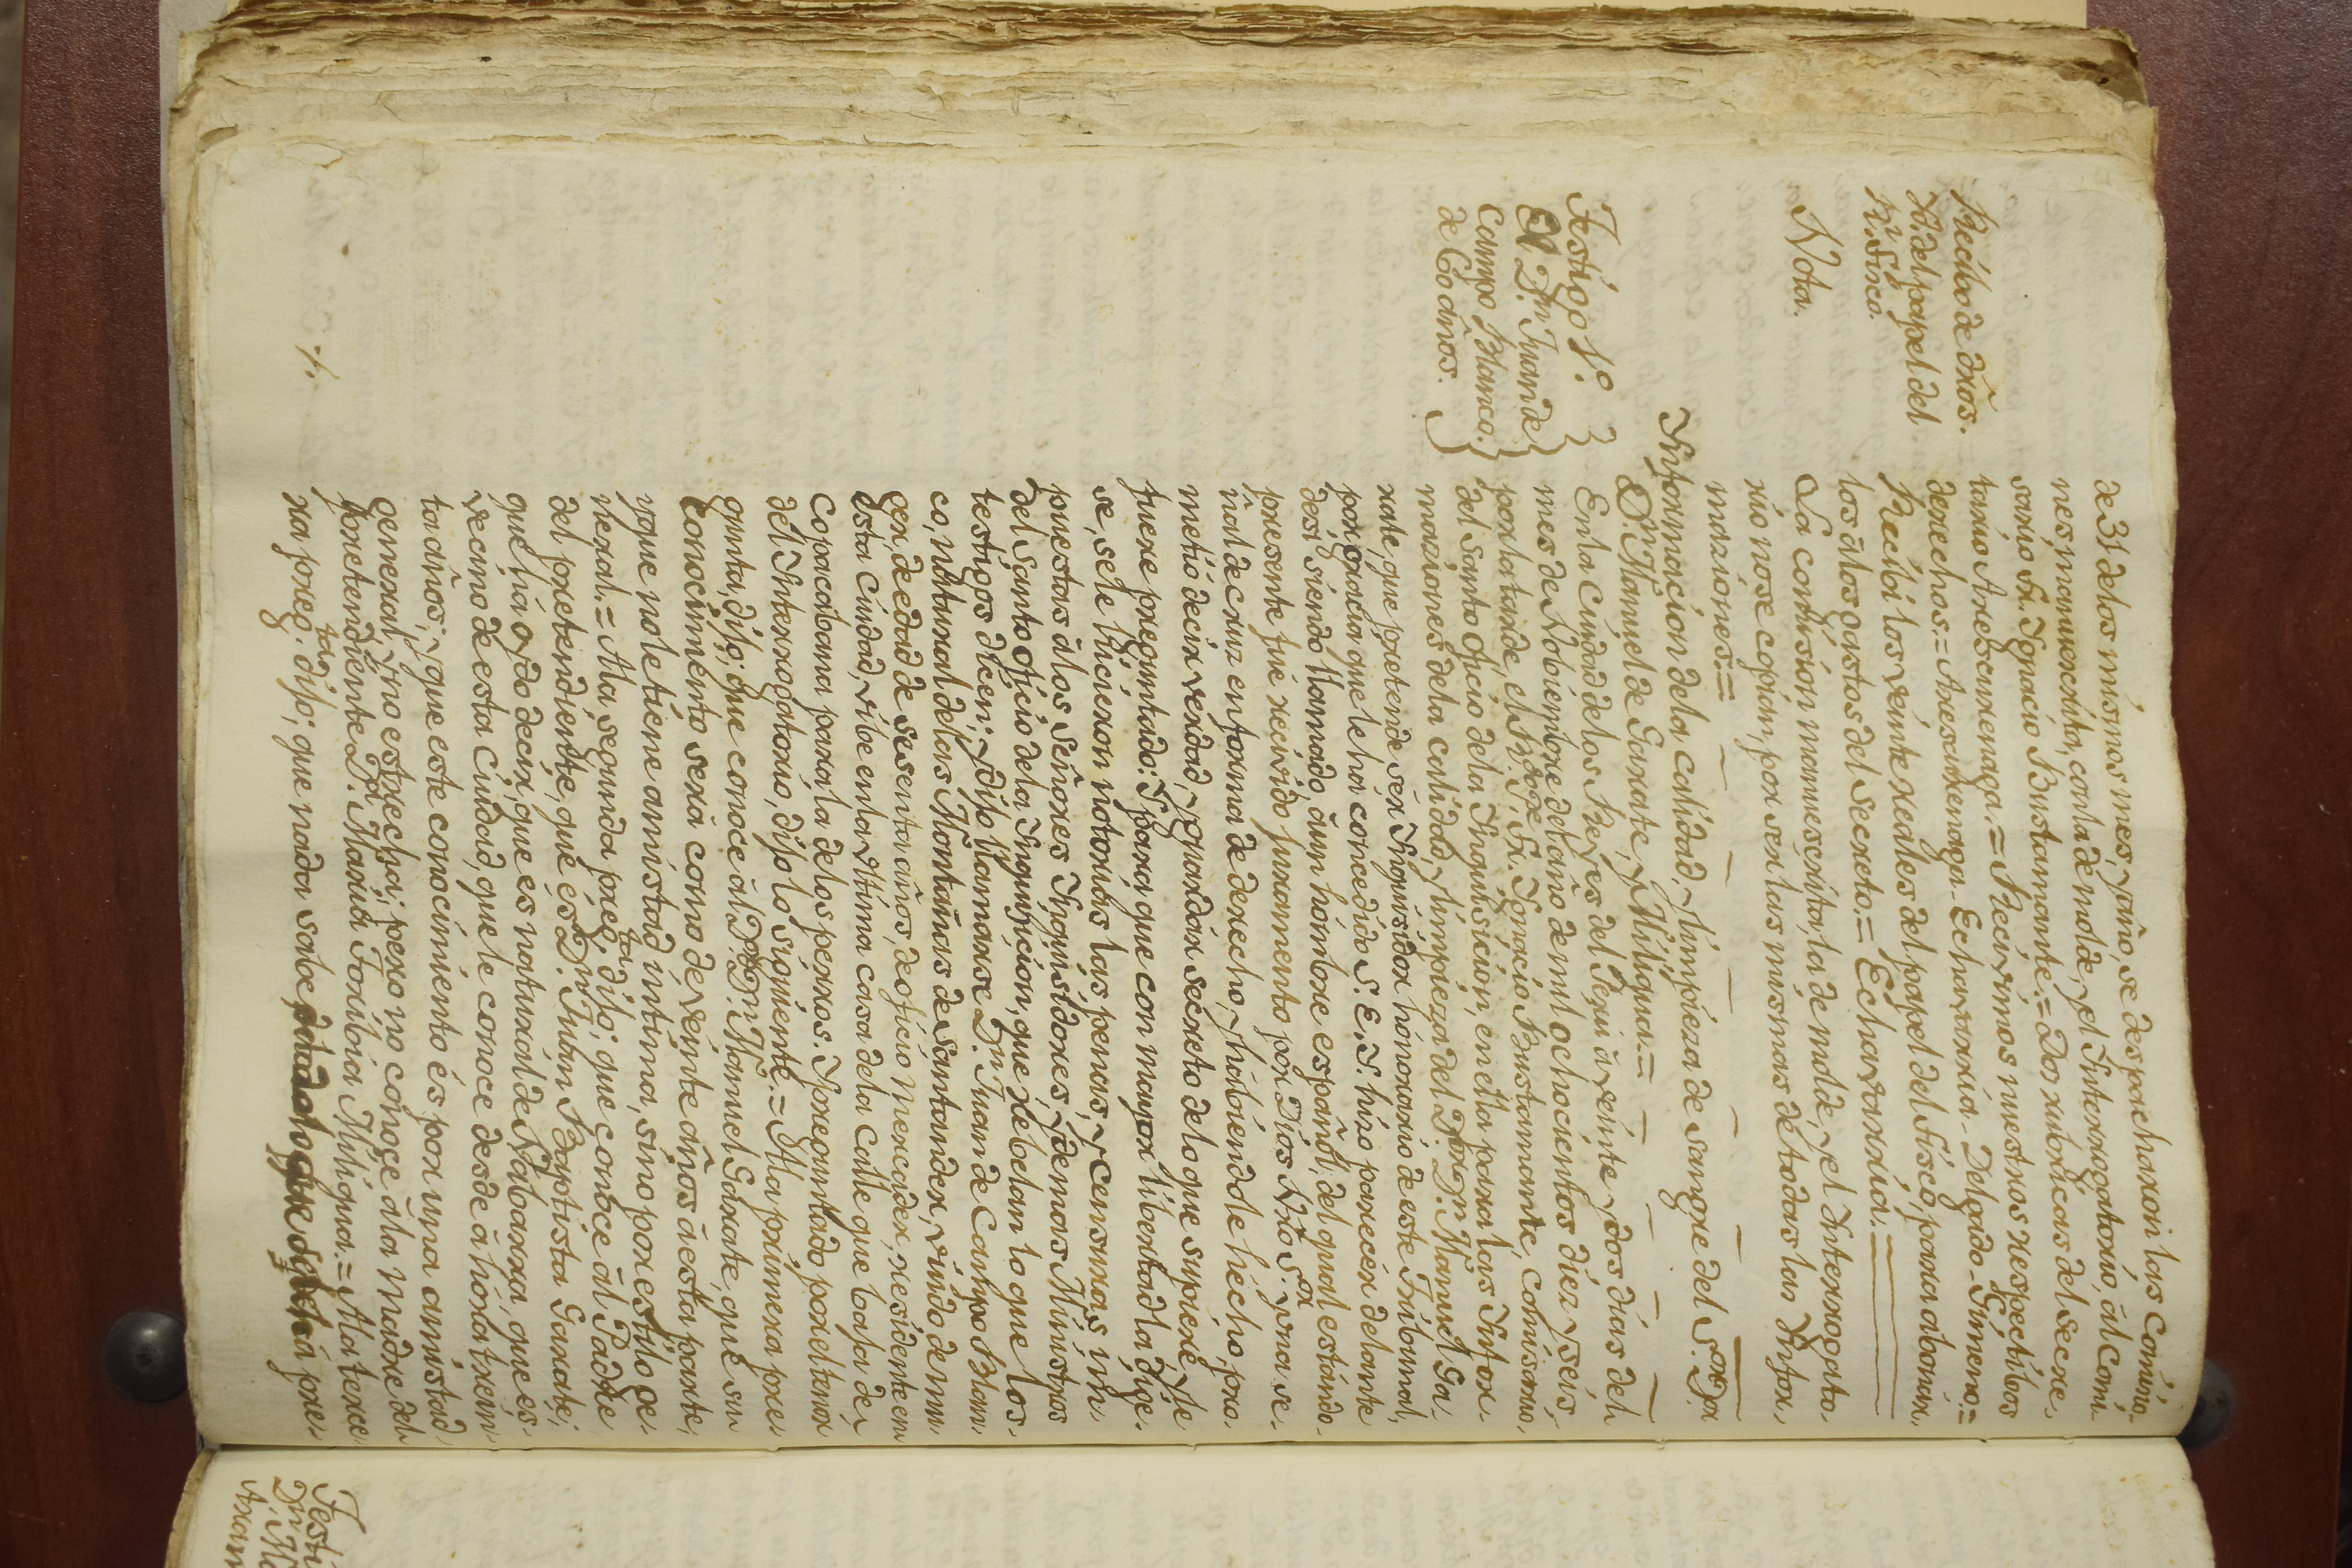 de 31 delos mismos mes, y año, se despacharon las Comisio-
nes, manuescrita, con la de molde, y el Interrogatorio, ál Comi-
sario Fr. Ignacio Bustamante.= Dos rubricas del Secre-
tario Arescurenaga.= Recivimos nuestros respectibos
derechos.= Aresurenaga- Echavarria- Delgado- Gimeno.=
Recibo de dros.
Recibi los veinte reales del papel del fisco, para abonar-
los á los gastos del Secreto.= Echavarria.=
Nota.
La comision manuescrita, la de molde, y el Interrogato-
rio no se copian, por ser las mismas de todas las Infor-
maziones.=
Informacion dela calidad, y limpieza de sangre del S.or D.or
D.n Manuel de Garate, y Mutiqua.=
Testigo 1.o
El D.n Juan de
Campo Blanco.
de 60 años.
En la Ciudad delos Reyes del Perú á veinte y dos dias del
mes de Nobiembre del año de mil ochocientos diez y seis,
por la tarde, el R. P. Fr. Ignacio Bustamante, Comisario
del Santo Oficio dela Inquisicion, en ella para las Infor-
maziones dela calidad, y limpieza del D.or D.n Manuel Ga-
rate, que pretende ser Inquisidor honorario de este Tribunal,
por gracia que le ha concedido S. E. I. hizo parecer delante
desi siendo llamado, á un hombre español, del qual estándo
presente fue recivido juramento por Dios Nro S.or y una se-
ñal de cruz en forma de derecho, y habiendole hecho, pro-
metió decir verdad, y guardar secreto delo que supiere, y le
fuere preguntado: Y para que con mayor libertad la dige-
se, se le hicieron notorias las penas, y censuras im-
puestas á los Señores Inquisidores, y demas Ministros
del Santo Oficio dela Inquisicion, que rebelan lo que los
testigos dicen; y dijo llamarse D.n Juan de Campo Blan-
co, natural delas Montañas de Santander, viudo de mu-
ger, de edad de sesenta años, de oficio Mercader, residente en
esta Ciudad, vibe en la ultima casa dela Calle que baja de
Copacabana para la delos perros. Y preguntado por el tenor
del Interrogatorio, dijo lo siguiente.= Ala primera pre-
gunta, dijo; que conoce ál D.or D.n Manuel Garate, que su
conocimento será como de veinte años á esta parte,
y que no le tiene amistad intima, sino por estilo ge-
neral.= Ala segunda preg.ta dijo; que conoce ál Padre
del pretendiente, que es D.n Juan Baptista Garate;
que há oydo decir, que es natural de Nabarra, que es
vecino de esta Ciudad, que le conoce desde á hora trein-
ta años; y que este conocimiento és por una amistad
general, y no estrecha; pero no conoçe á la Madre del
pretendiente D.a Maria Toribia Mutiqua.= Ala terce-
ra preg.ta dijo; que nada sabe pre-